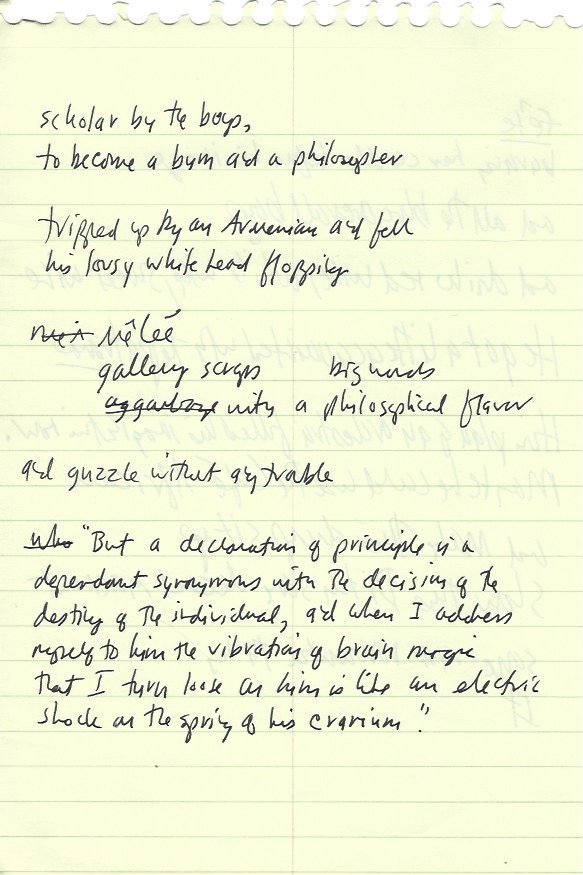 scholar by the boys,
to become a bum and a philosopher
tripped up by an Armenian and fell
his lousy white head flopping
Mêleé
gallery scraps big words
with a philosophical flavor
and guzzle without any trouble
who "But a declaration of principle is a
dependant synonymous with the decision of the
destiny of the individual, and when I address
myself to him the vibration of brain
that I turn loose on him is like an electric
shock on the spring of his cranium."